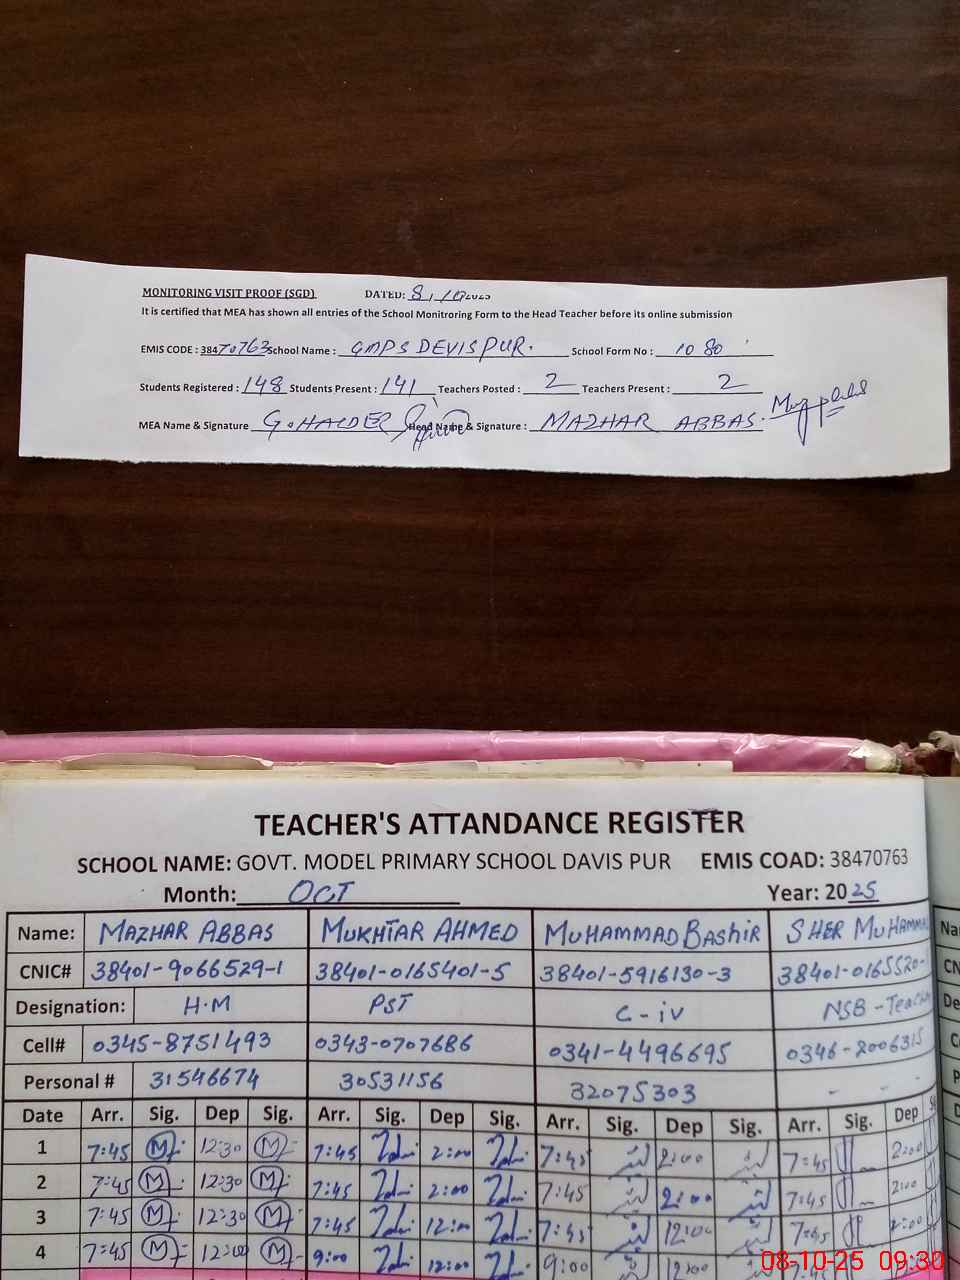 MONITORING VISIT PROOF (SGD) DATED: 8/10/2025
It is certified that MEA has shown all entries of the School Monitroring Form to the Head Teacher before its online submission
EMIS CODE : 38470763 School Name : GMPS DEVISPUR. School Form No : 1080
Students Registered : 148 Students Present : 141 Teachers Posted : 2 Teachers Present : 2
MEA Name & Signature G. HAIDER Head Name & Signature : MAZHAR ABBAS.
TEACHER'S ATTANDANCE REGISTER
SCHOOL NAME: GOVT. MODEL PRIMARY SCHOOL DAVIS PUR EMIS COAD: 38470763
Month: OCT Year: 2025
Name: MAZHAR ABBAS MUKHTAR AHMED MUHAMMAD BASHIR SHER MUHAMMA
CNIC# 38401-9066529-1 38401-0165401-5 38401-5916130-3 38401-0165520-
Designation: H.M PST C-iv NSB-Teach
Cell# 0345-8751493 0343-0707686 0341-4496695 0346-2006315
Personal # 31546674 30531156 32075303 - - -
Date Arr. Sig. Dep Sig. Arr. Sig. Dep Sig. Arr. Sig. Dep Sig. Arr. Sig. Dep
1 7:45 M 12:30 M 7:45 2:00 7:45 2:00 7:45 2:00
2 7:45 M 12:30 M 7:45 2:00 7:45 2:00 7:45 2:00
3 7:45 M 12:30 M 7:45 12:00 7:45 12:00 7:45 2:00
4 7:45 M 12:00 M 9:00 12:00 9:00 12:00 7:45
08-10-25 09:30